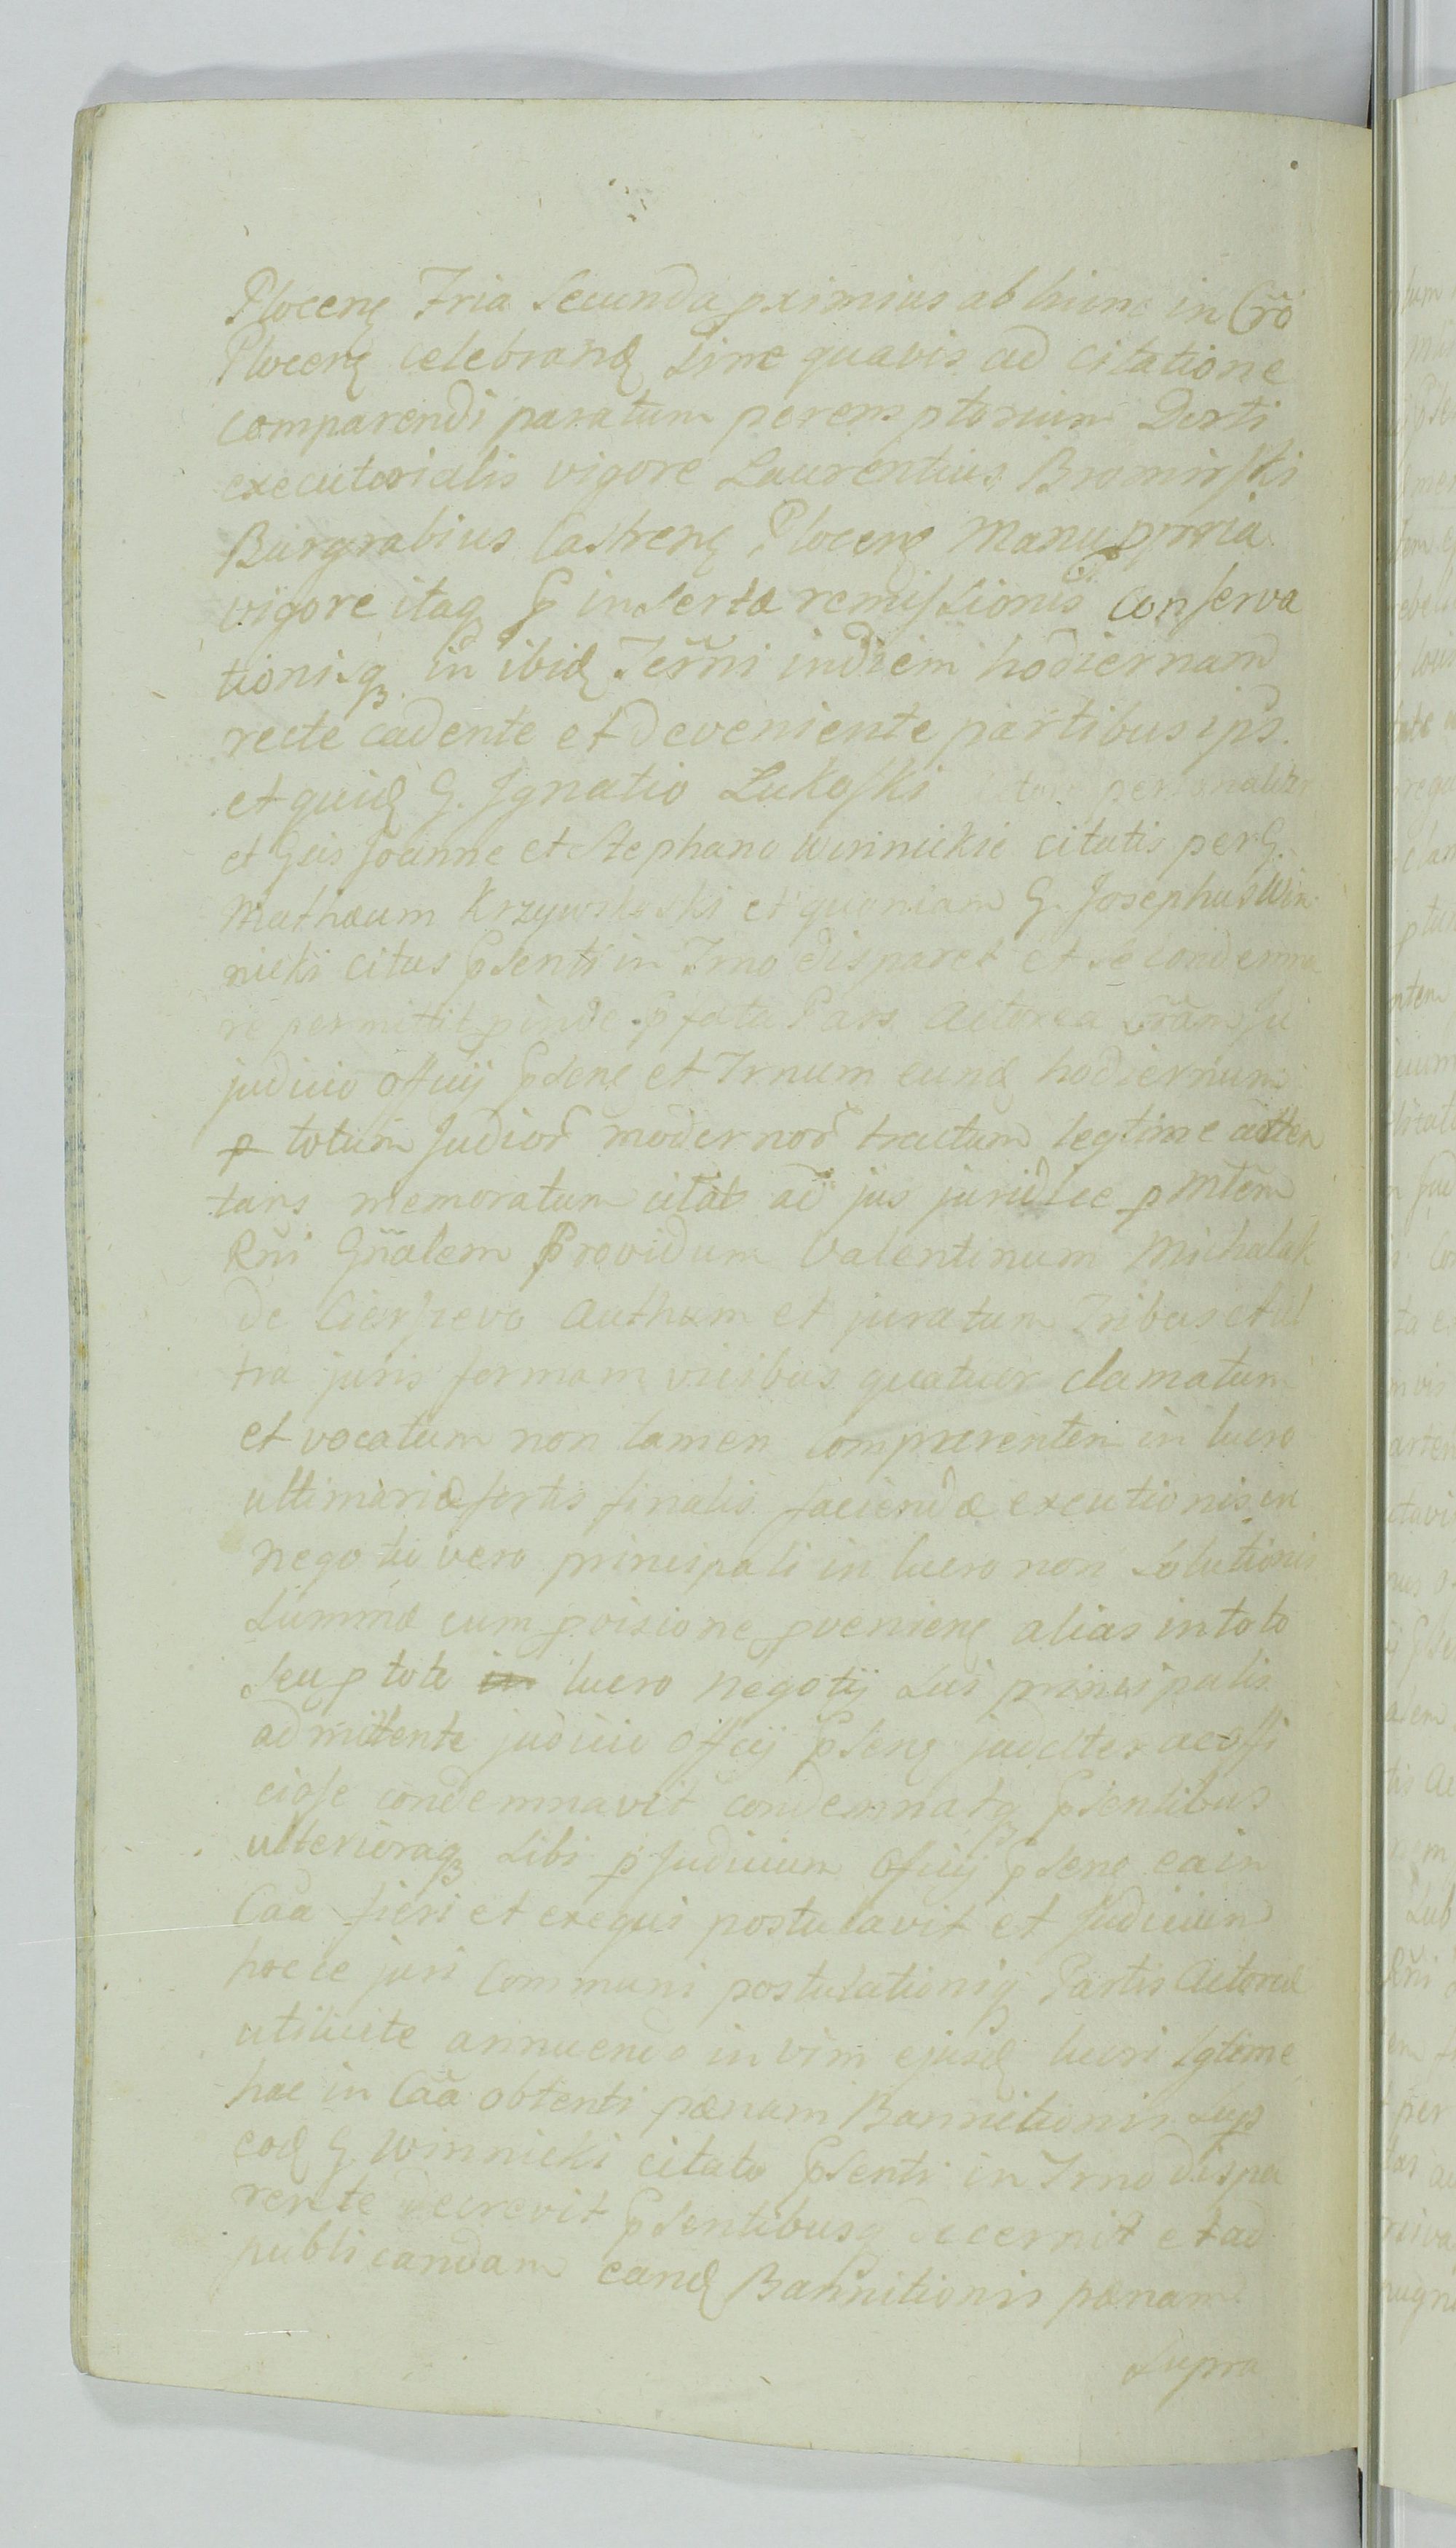 Plocenȩ Fria Secunda pximius ab hinc in Crõ
Plocenȩ celebranđ Sine quavis ad citatione
comparendi paratum peremptorium Derti
executorialis vigore Laurentius Brominski
Burgrabius Castrenȩ Plocenȩ Manu ppria
vigore itaq P inserta remissionis Conserva
tionisq in ibid Termni in diem hodiernam
recte cadente et deveniente partibus ips.
et quid G. Ignatio Lukoski personaliter
et Gēis Joanne et Stephano Winnickie citatis per G.
Mathæum Krzywkoski et quoniam G. Josephus Win
nicki citus Psenti in Trno disparet et se condemna
re permittit pinde Pfata Pars Actorea
judicio Officij Psenȩ et Trnum eund hodiernum
p totum Judior modernor tractum legtime atten
tans memoratum citat ad jus juridice p Mtem
Rñi Gñalem Providum Valentinum Michalak
de Cierszewo Authum et juratum Tribus et ul
tra juris formam vicibus quatuor clamatum
et vocatum non tamen comparentem in lucro
ultimariæ sortis finalis faciendæ executionis in
negotio vero principali in lucro non Solutionis
Summæ cum pvisione pvenienȩ alias in toto
seu p toto in lucro negotij sui principalis
admittente judicio Officij Psenȩ judclter ac offi
ciose condemnavit condemnatq Psentibus
ulterioraq sibi p Judicium Officij Psene ea in
Caã fieri et exequi postulavit et Judicium
hocce juri Communi postulationiq Partis Actoreæ
utilicite annuendo in vim ejusd lucri lgtime
hac in Caã obtenti pœnam Bannitionis Sup
eod G Winnicki citato Psenti in Trno dispa
rente decrevit Psentibusq decernit et ad
publicandam eand Bannitionis pœnam
Supra